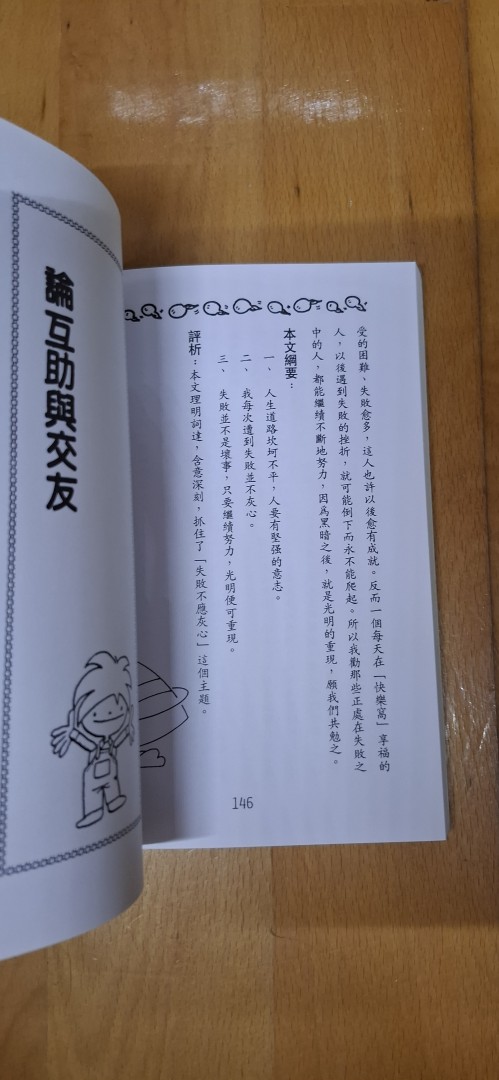 受的困難、失敗愈多，這人也許以後愈有成就。反而一個每天在「快樂窩」享福的
人，以後遇到失敗的挫折，就可能倒下而永不能爬起。所以我勸那些正處在失敗之
中的人，都能繼續不斷地努力，因為黑暗之後，就是光明的重現，願我們共勉之。
本文綱要：
一、人生道路坎坷不平，人要有堅强的意志。
二、我每次遭到失敗並不灰心。
三、失敗並不是壞事，只要繼續努力，光明便可重現。
評析：本文理明詞達，含意深刻，抓住了「失敗不應灰心」這個主題。
146
論互助與交友